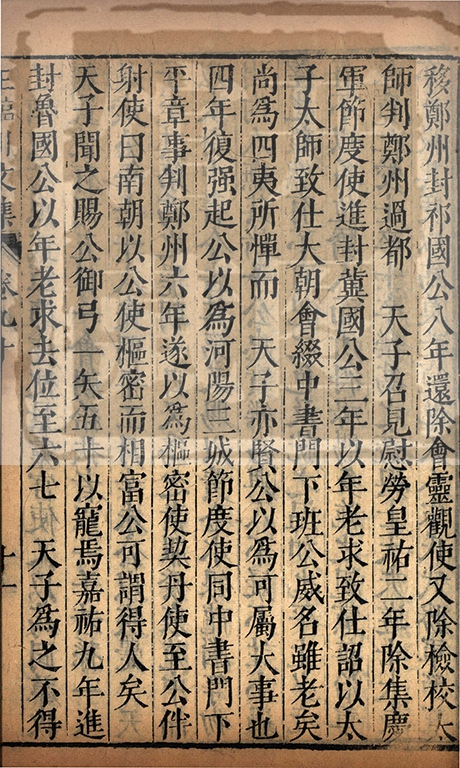 移鄭州封祁國公八年還除會靈觀使又除檢校太
師判鄭州過都　天子召見慰勞皇祐二年除集慶
軍節度使進封冀國公三年以年老求致仕詔以太
子太師致仕大朝會綴中書門下班公威名雖老矣
尚爲四夷所憚而　天子亦賢公以爲可屬大事也
四年復强起公以爲河陽三城節度使同中書門下
平章事判鄭州六年遂以爲樞密使契丹使至公伴
射使曰南朝以公使樞密而相富公可謂得人矣
天子聞之賜公御弓一矢五十以寵焉嘉祐九年進
封魯國公以年老求去位至六七　天子爲之不得
王臨川文集　卷九十　十一